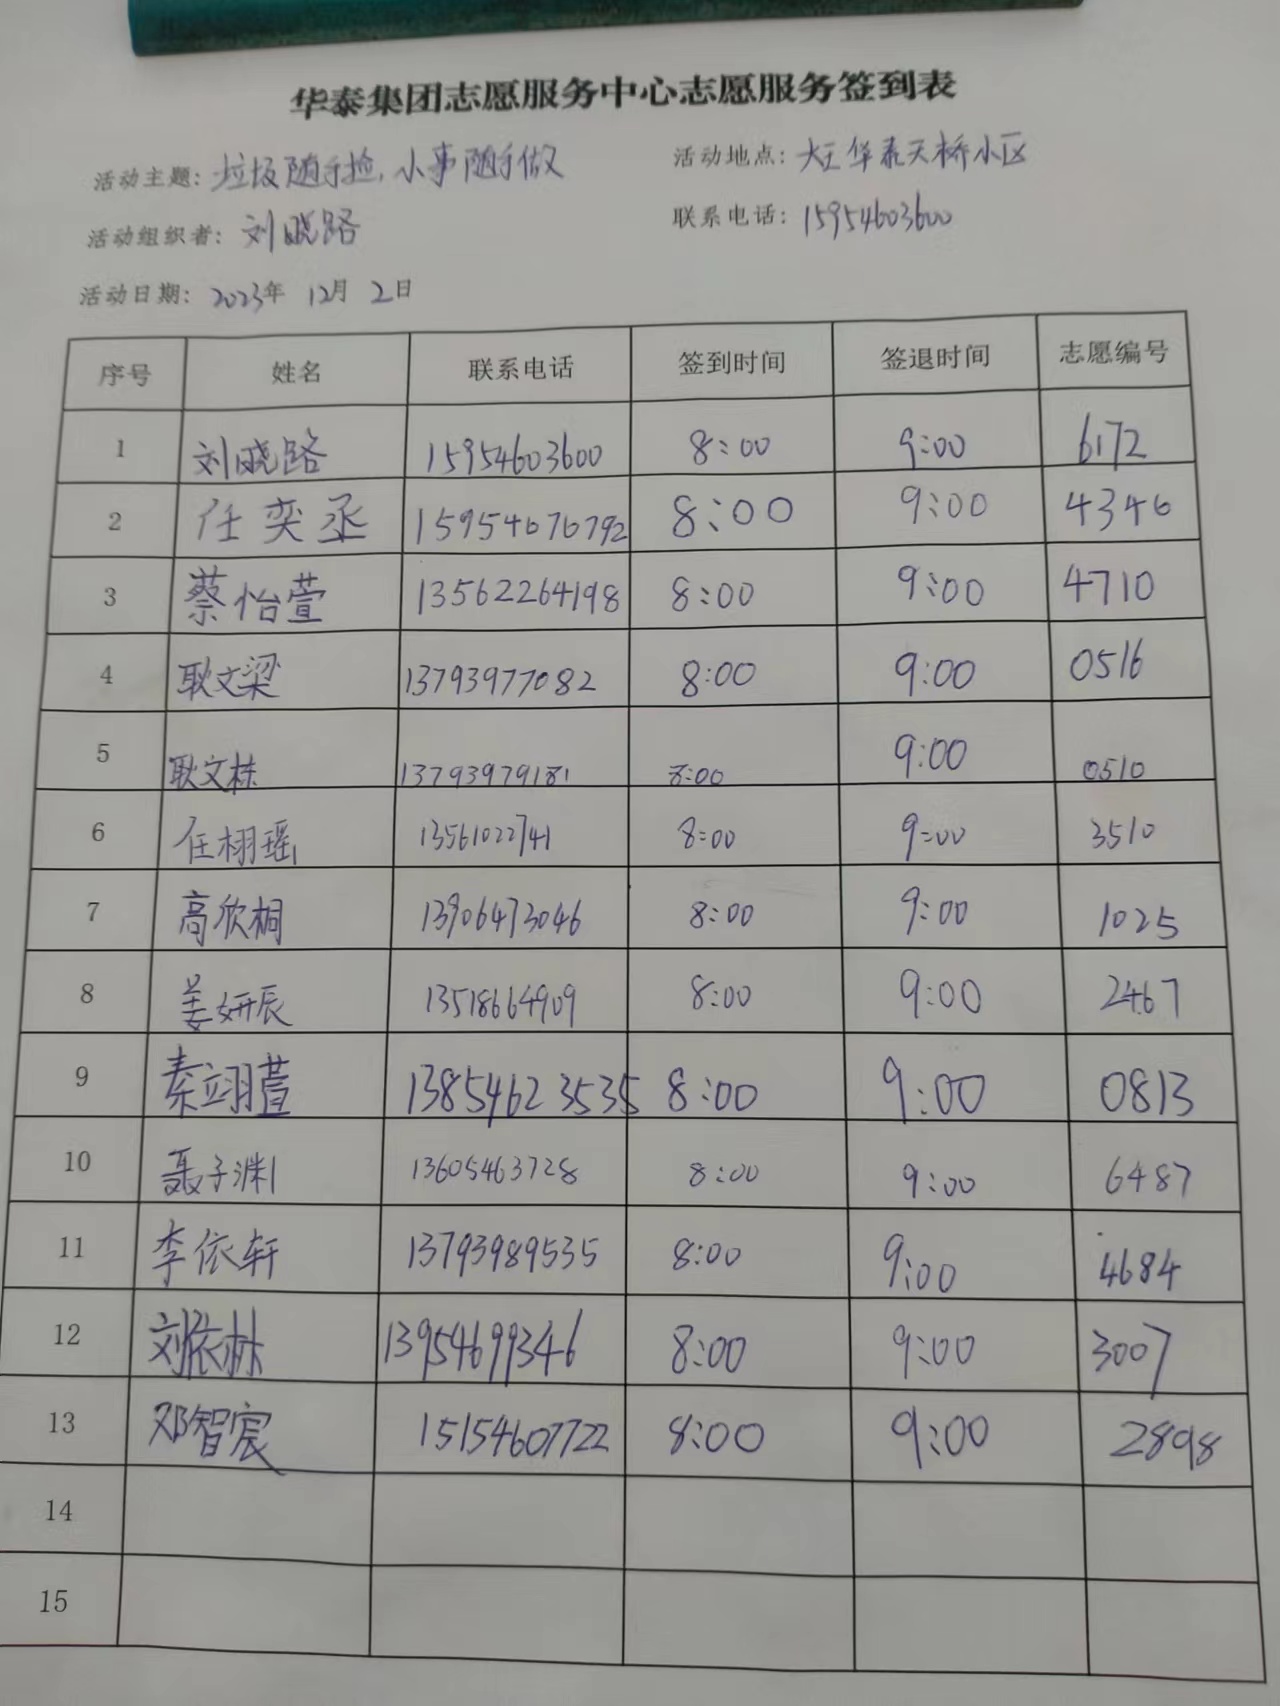 华泰集团志愿服务中心志愿服务签到表
活动主题: 垃圾随手捡,小事随手做 活动地点: 大王华泰天桥小区
活动组织者: 刘晓路 联系电话: 15954603600
活动日期: 2023年 12月 2日
序号 姓名 联系电话 签到时间 签退时间 志愿编号
1 刘晓路 15954603600 8:00 9:00 6172
2 任奕丞 15954676792 8:00 9:00 4346
3 蔡怡萱 13562264198 8:00 9:00 4710
4 耿文梁 13793977082 8:00 9:00 0516
5 耿文栋 13793979181 8:00 9:00 0510
6 任栩瑶 13561022741 8:00 9:00 3510
7 高欣桐 13906473046 8:00 9:00 1025
8 姜妍辰 13518664909 8:00 9:00 2467
9 秦翊萱 13854623535 8:00 9:00 0813
10 聂子渊 13605463728 8:00 9:00 6487
11 李依轩 13793989535 8:00 9:00 4684
12 刘依林 13954699346 8:00 9:00 3007
13 邓智宸 15154607722 8:00 9:00 2898
14
15